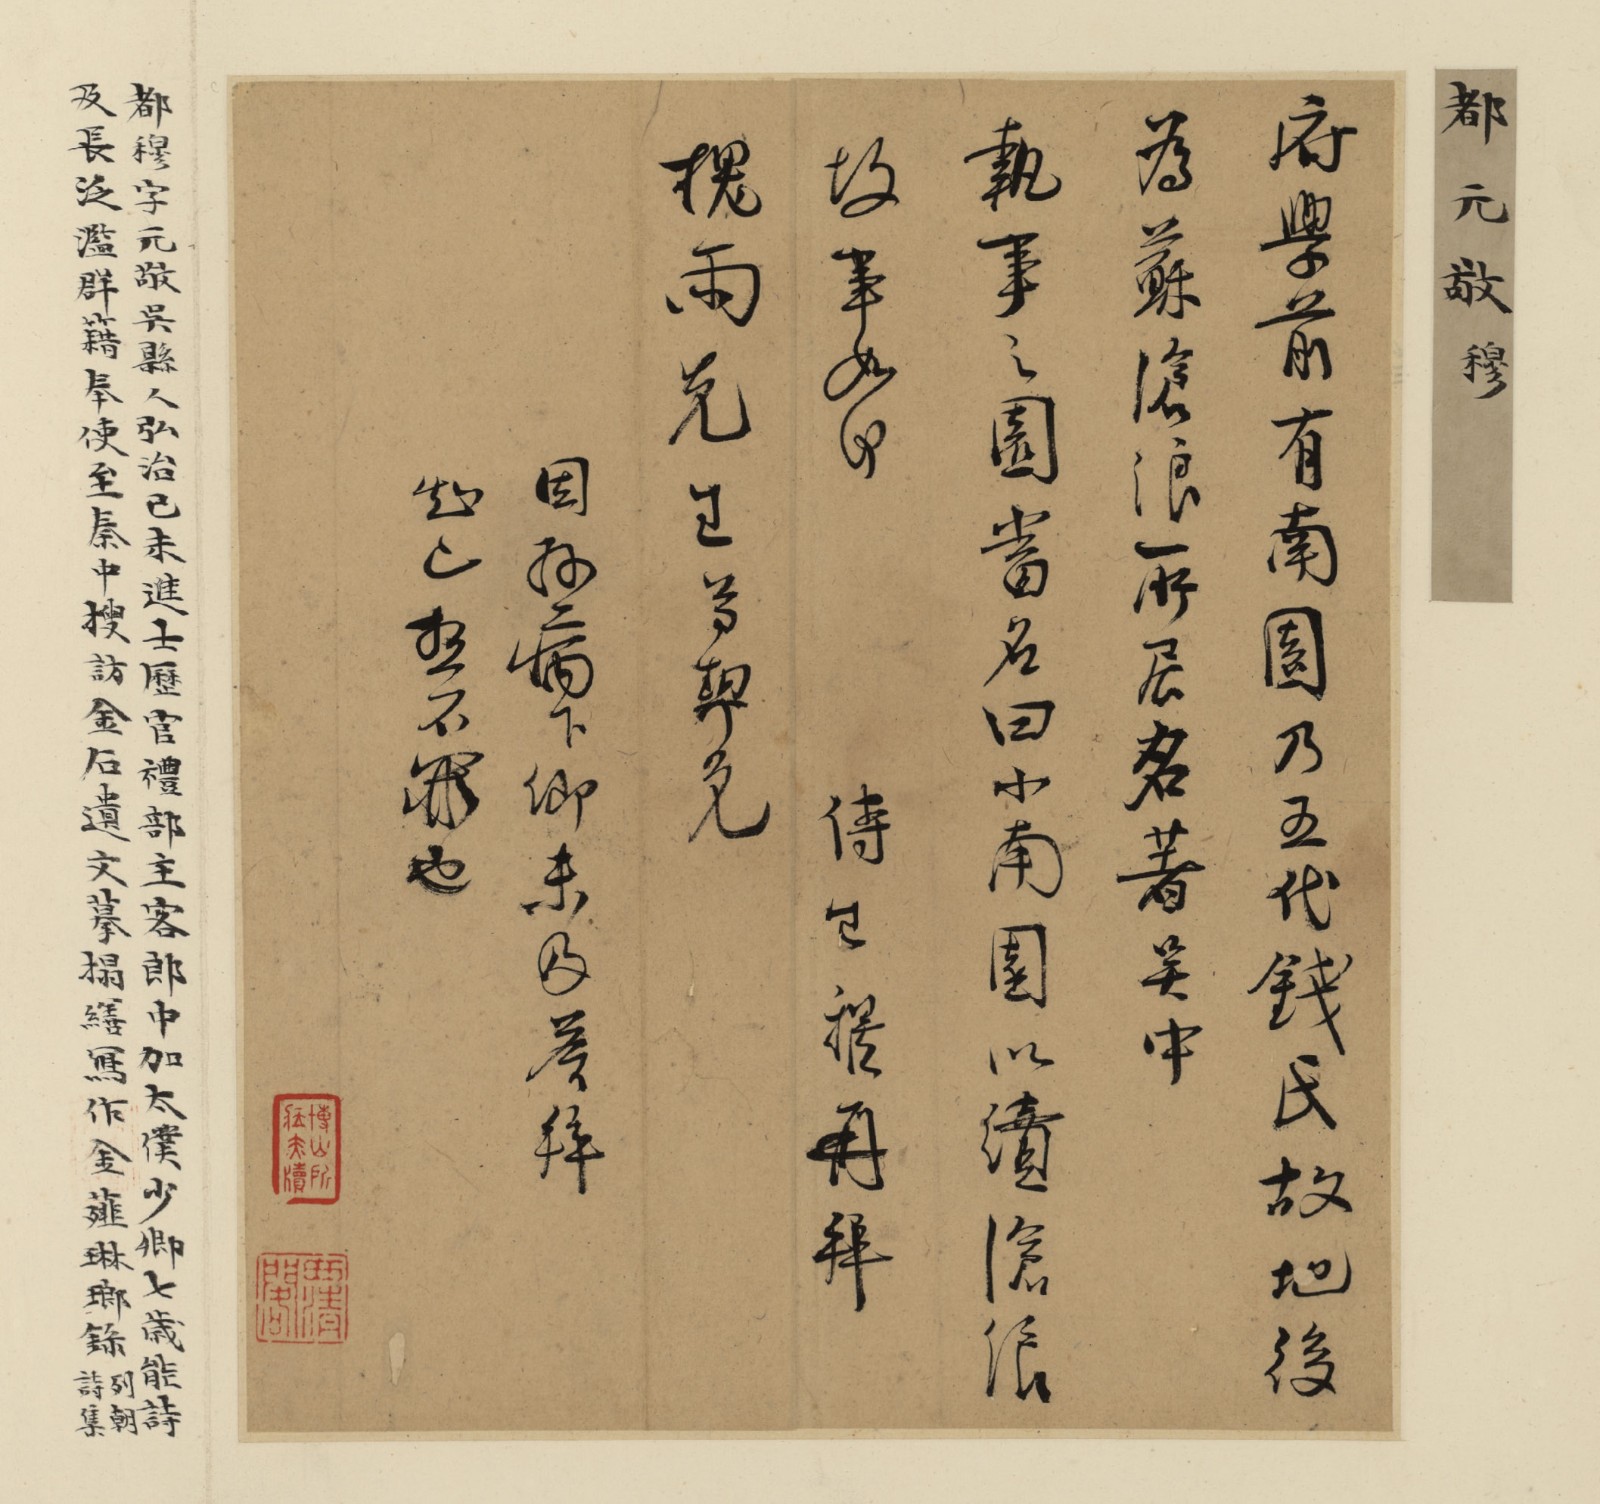 都元敬穆
府學前有南園乃五代錢氏故地後
為蘇滄浪所居名著吳中
執事之園當名曰小南園以續滄浪
故事如何
侍生穆再拜
槐雨先生尊契兄
因孫病下鄉未及答拜
知必恕不罪也
都穆字元敬吳縣人弘治己未進士歷官禮部主客郎中加太僕少卿七歲能詩
及長泛濫群籍奉使至秦中搜訪金石遺文摹搨繕寫作金薤琳瑯錄
列朝
詩集